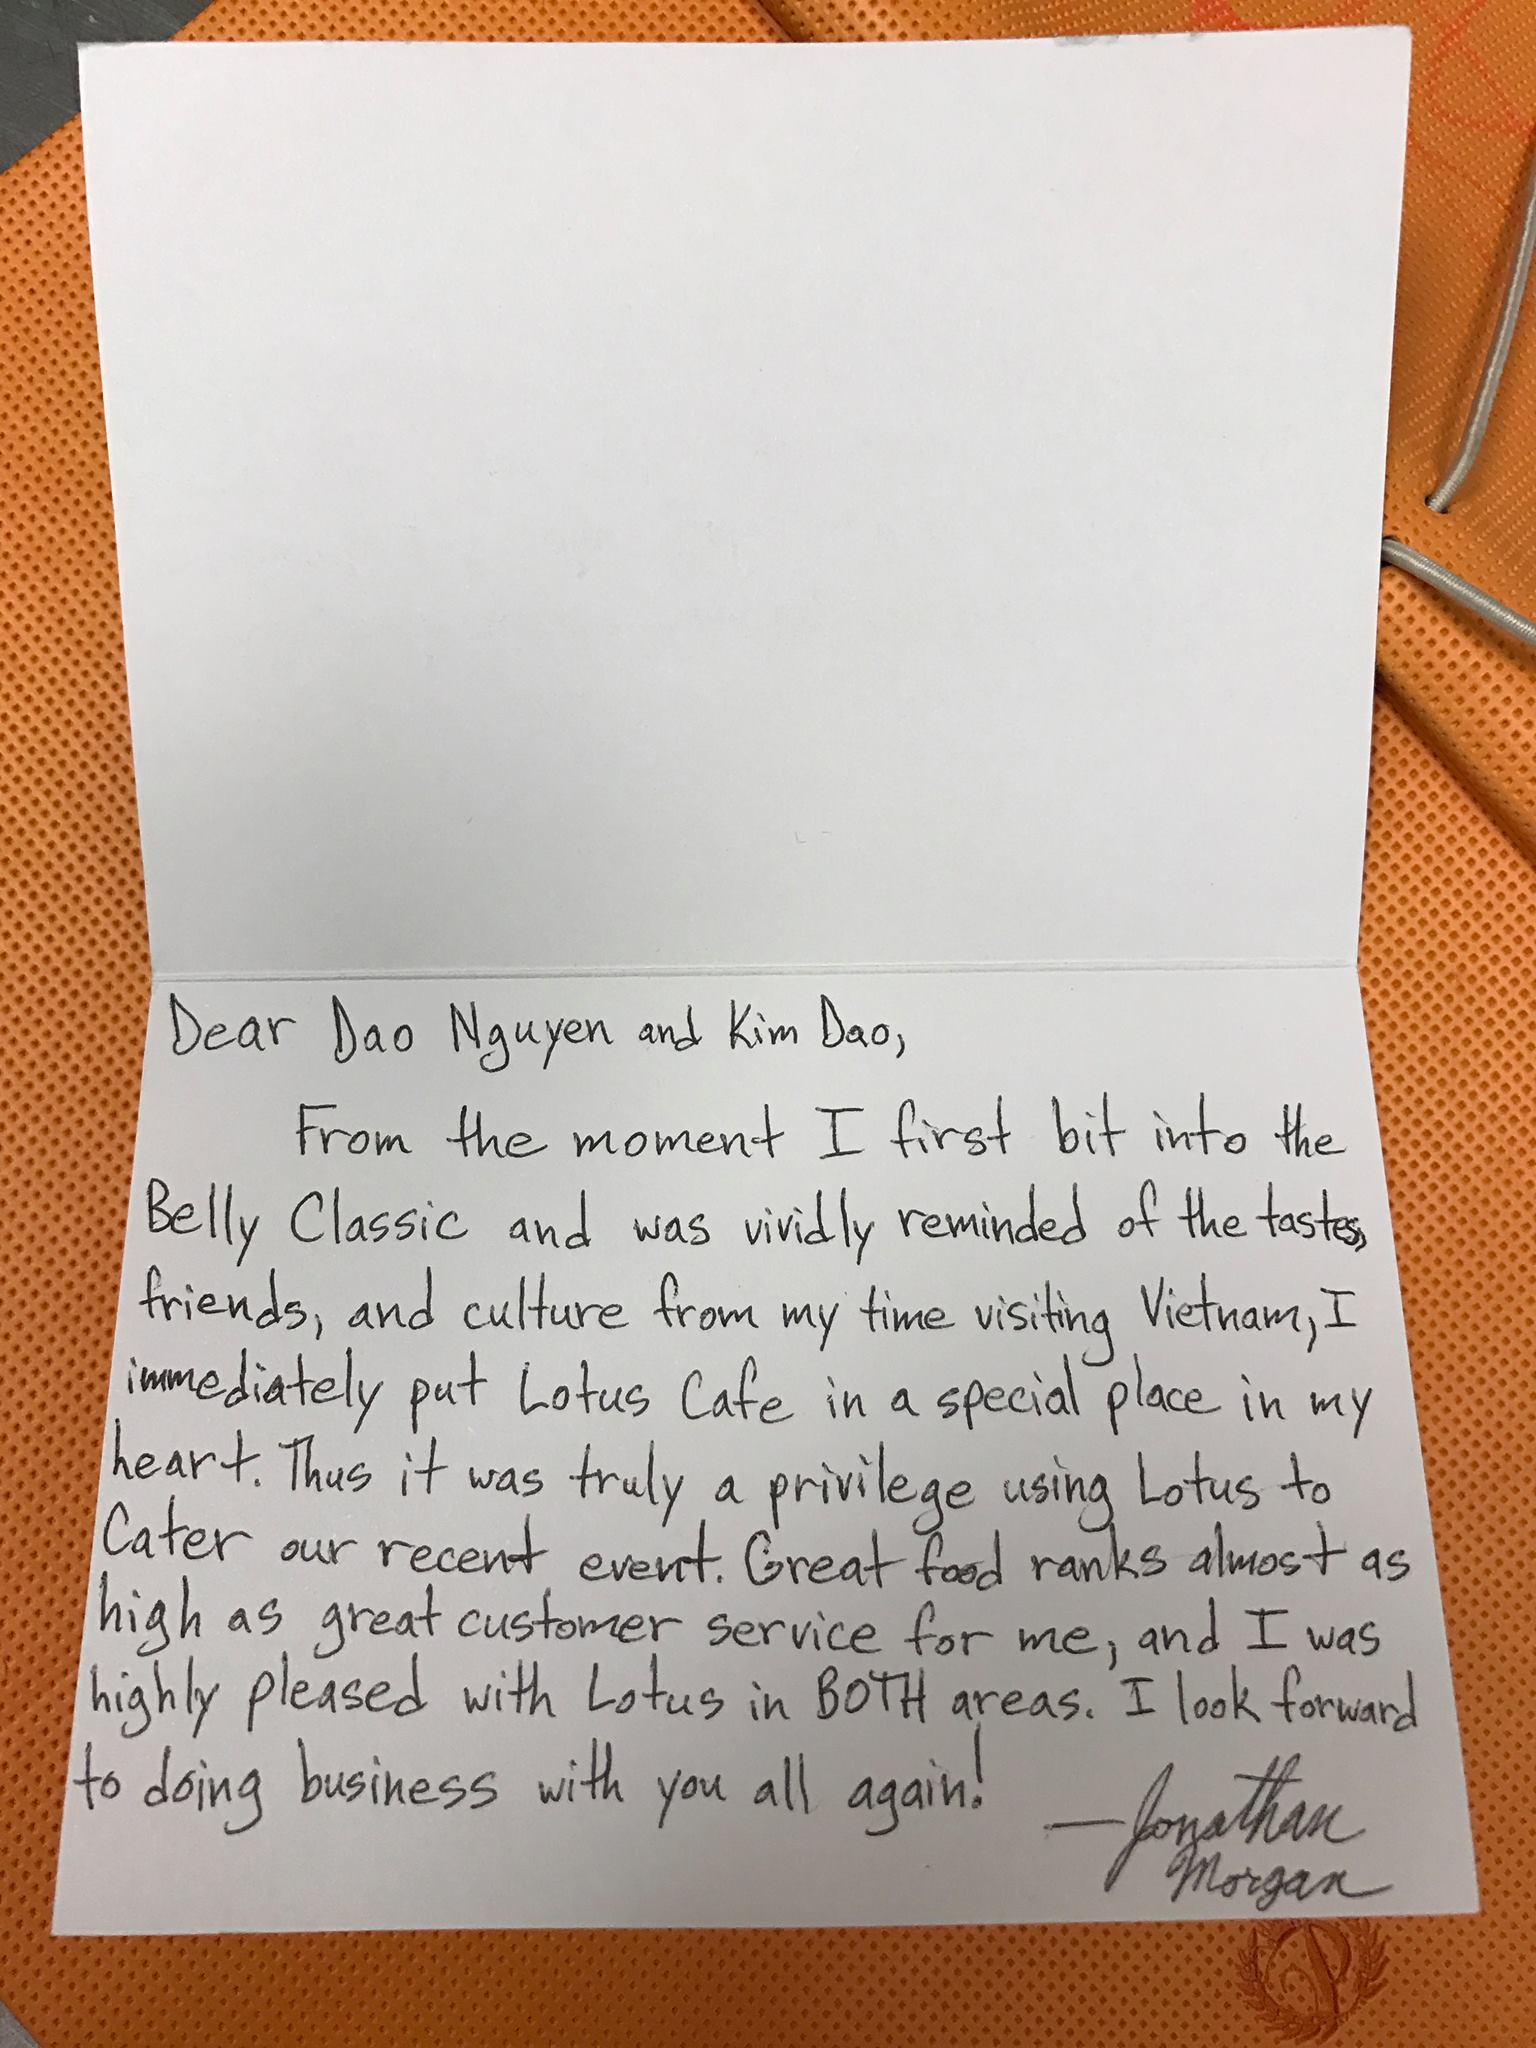 Dear Dao Nguyen and Kim Dao,
From the moment I first bit into the
Belly Classic and was vividly reminded of the tastes,
friends, and culture from my time visiting Vietnam, I
immediately put Lotus Cafe in a special place in my
heart. Thus it was truly a privilege using Lotus to
Cater our recent event. Great food ranks almost as
high as great customer service for me, and I was
highly pleased with Lotus in BOTH areas. I look forward
to doing business with you all again!
—Jonathan
Morgan